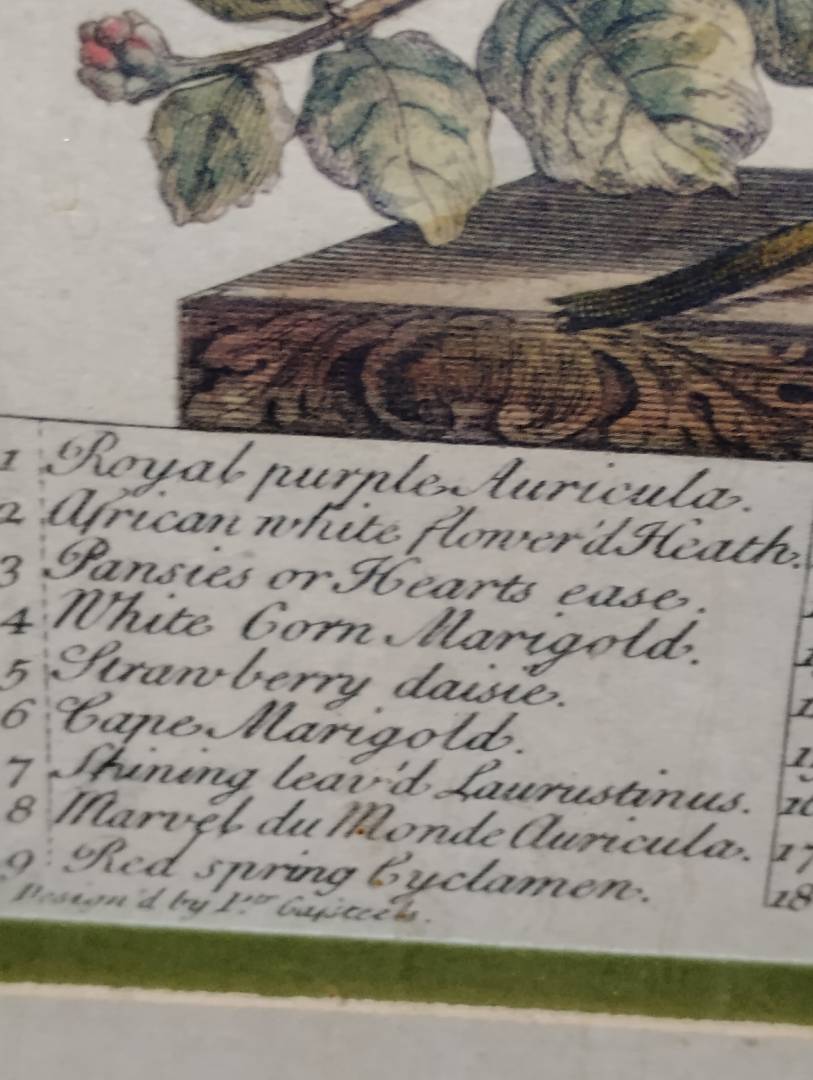 1 Royal purple Auricula.
2 African white flower'd Heath.
3 Pansies or Hearts ease.
4 White Corn Marigold.
5 Strawberry daisie.
6 Cape Marigold.
7 Shining leav'd Laurustinus.
8 Marvel du Monde Auricula.
9 Red spring Cyclamen.
Design'd by Pr. Casteels.
16
17
18